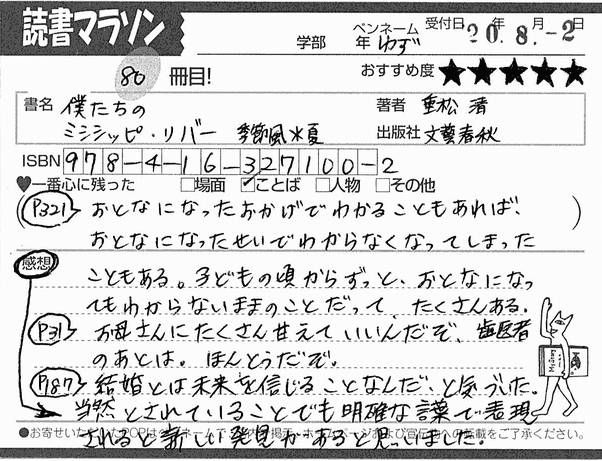 読書マラソン
学部 年 ペンネーム ゆず 受付日 20年 8月 -2日
80 冊目! おすすめ度 ★★★★★
書名 僕たちの 著者 重松 清
ミシシッピ・リバー 季節風*夏 出版社 文藝春秋
ISBN 978-4-16-327100-2
♥一番心に残った □場面 ☑ことば □人物 □その他
(P321) おとなになったおかげでわかることもあれば、
おとなになったせいでわからなくなってしまった
感想 こともある。子どもの頃からずっと、おとなになっ
てもわからないままのことだって、たくさんある。
P31 お母さんにたくさん甘えていいんだぞ、歯医者
のあとは。ほんとうだぞ。
P187 結婚とは未来を信じることなんだ、と気づいた。
当然とされていることでも明確な言葉で表現
されると新しい発見があると思っていました。
●お寄せいただいたPOPはペンネームで